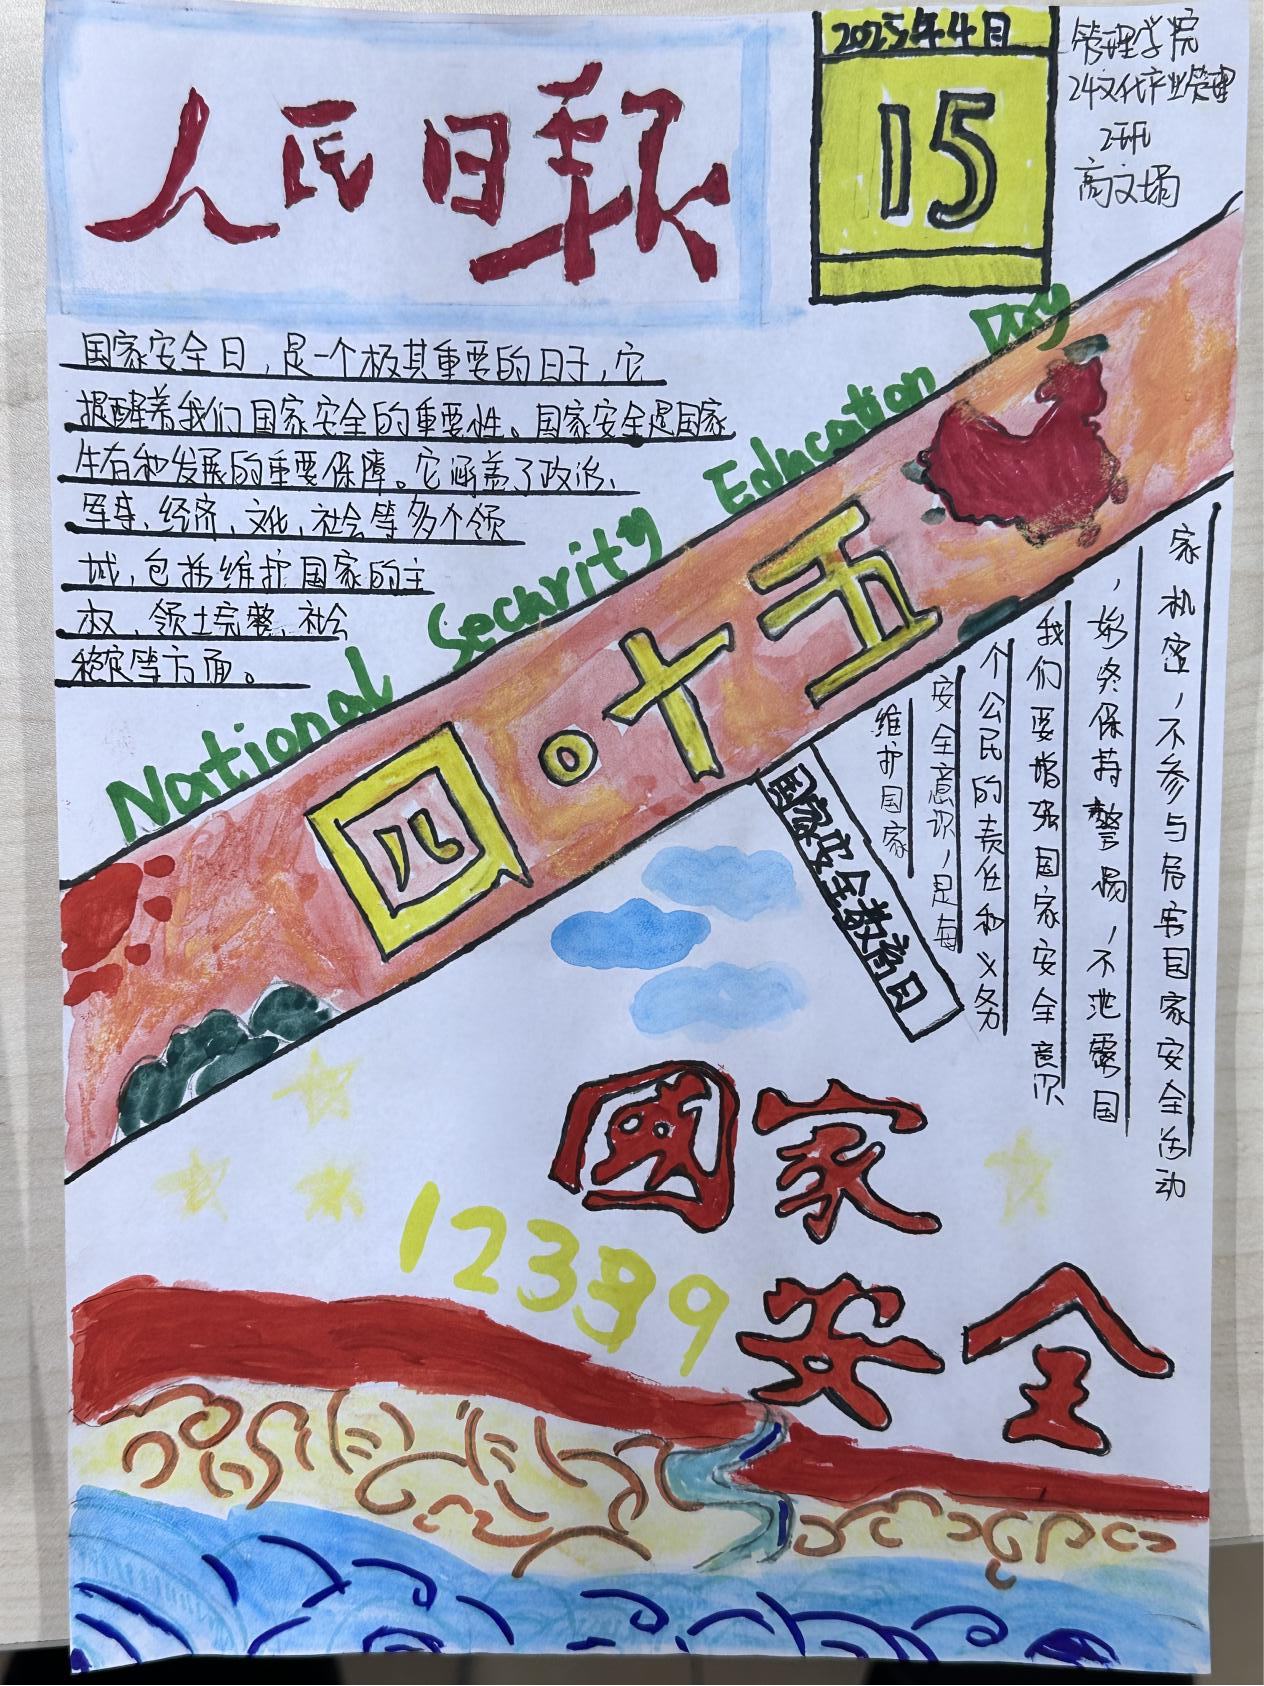 人民日报
2025年4月
15
管理学院
24文化产业管理
2班
高文娟
国家安全日，是一个极其重要的日子，它
提醒着我们国家安全的重要性。国家安全是国家
生存和发展的重要保障。它涵盖了政治、
军事、经济、文化、社会等多个领
域，包括维护国家的主
权、领土完整、社会
稳定等方面。
National Security Education Day
四。十五
国家安全教育日
维护国家
安全意识，是每
个公民的责任和义务
我们要增强国家安全意识
，始终保持警惕，不泄露国
家机密，不参与危害国家安全活动
國家
安全
12339